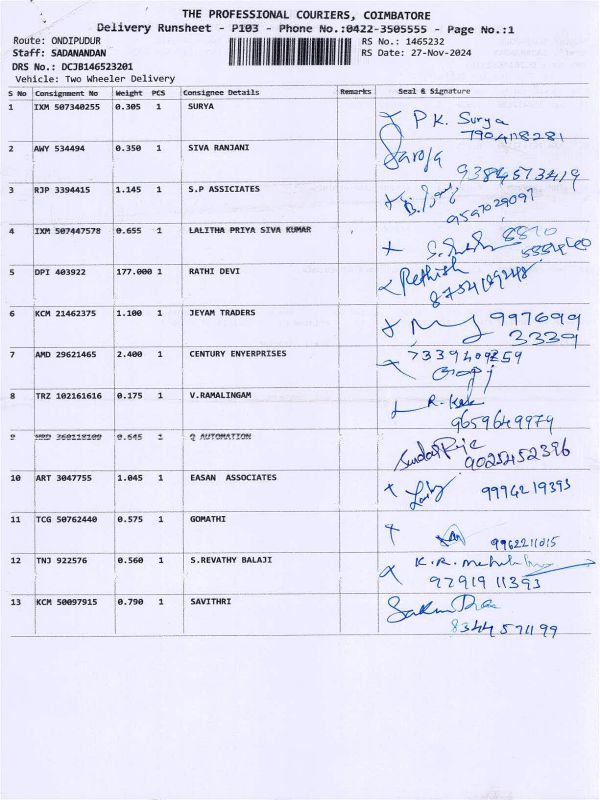 THE PROFESSIONAL COURIERS, COIMBATORE
Delivery Runsheet - P103 - Phone No.:0422-3505555 - Page No.:1
Route: ONDIPUDUR RS No.: 1465232
Staff: SADANANDAN RS Date: 27-Nov-2024
DRS No.: DCJB146523201
Vehicle: Two Wheeler Delivery
S No Consignment No Weight PCS Consignee Details Remarks Seal & Signature
1 IXM 507340255 0.305 1 SURYA P K. Surya
7904118281
2 AWY 534494 0.350 1 SIVA RANJANI Saroja
9384573419
3 RJP 3394415 1.145 1 S.P ASSICIATES
9597029097
4 IXM 507447578 0.655 1 LALITHA PRIYA SIVA KUMAR
5 DPI 403922 177.000 1 RATHI DEVI Rethish
6 KCM 21462375 1.100 1 JEYAM TRADERS 997699
3339
7 AMD 29621465 2.400 1 CENTURY ENYERPRISES 7339409259
Gopi
8 TRZ 102161616 0.175 1 V.RAMALINGAM
9659649979
9 MRD 360118100 0.645 1 Q AUTOMATION
9025452396
10 ART 3047755 1.045 1 EASAN ASSOCIATES 9994219393
11 TCG 50762440 0.575 1 GOMATHI
9962211015
12 TNJ 922576 0.560 1 S.REVATHY BALAJI K.R.
9791911393
13 KCM 50097915 0.790 1 SAVITHRI
8344571199